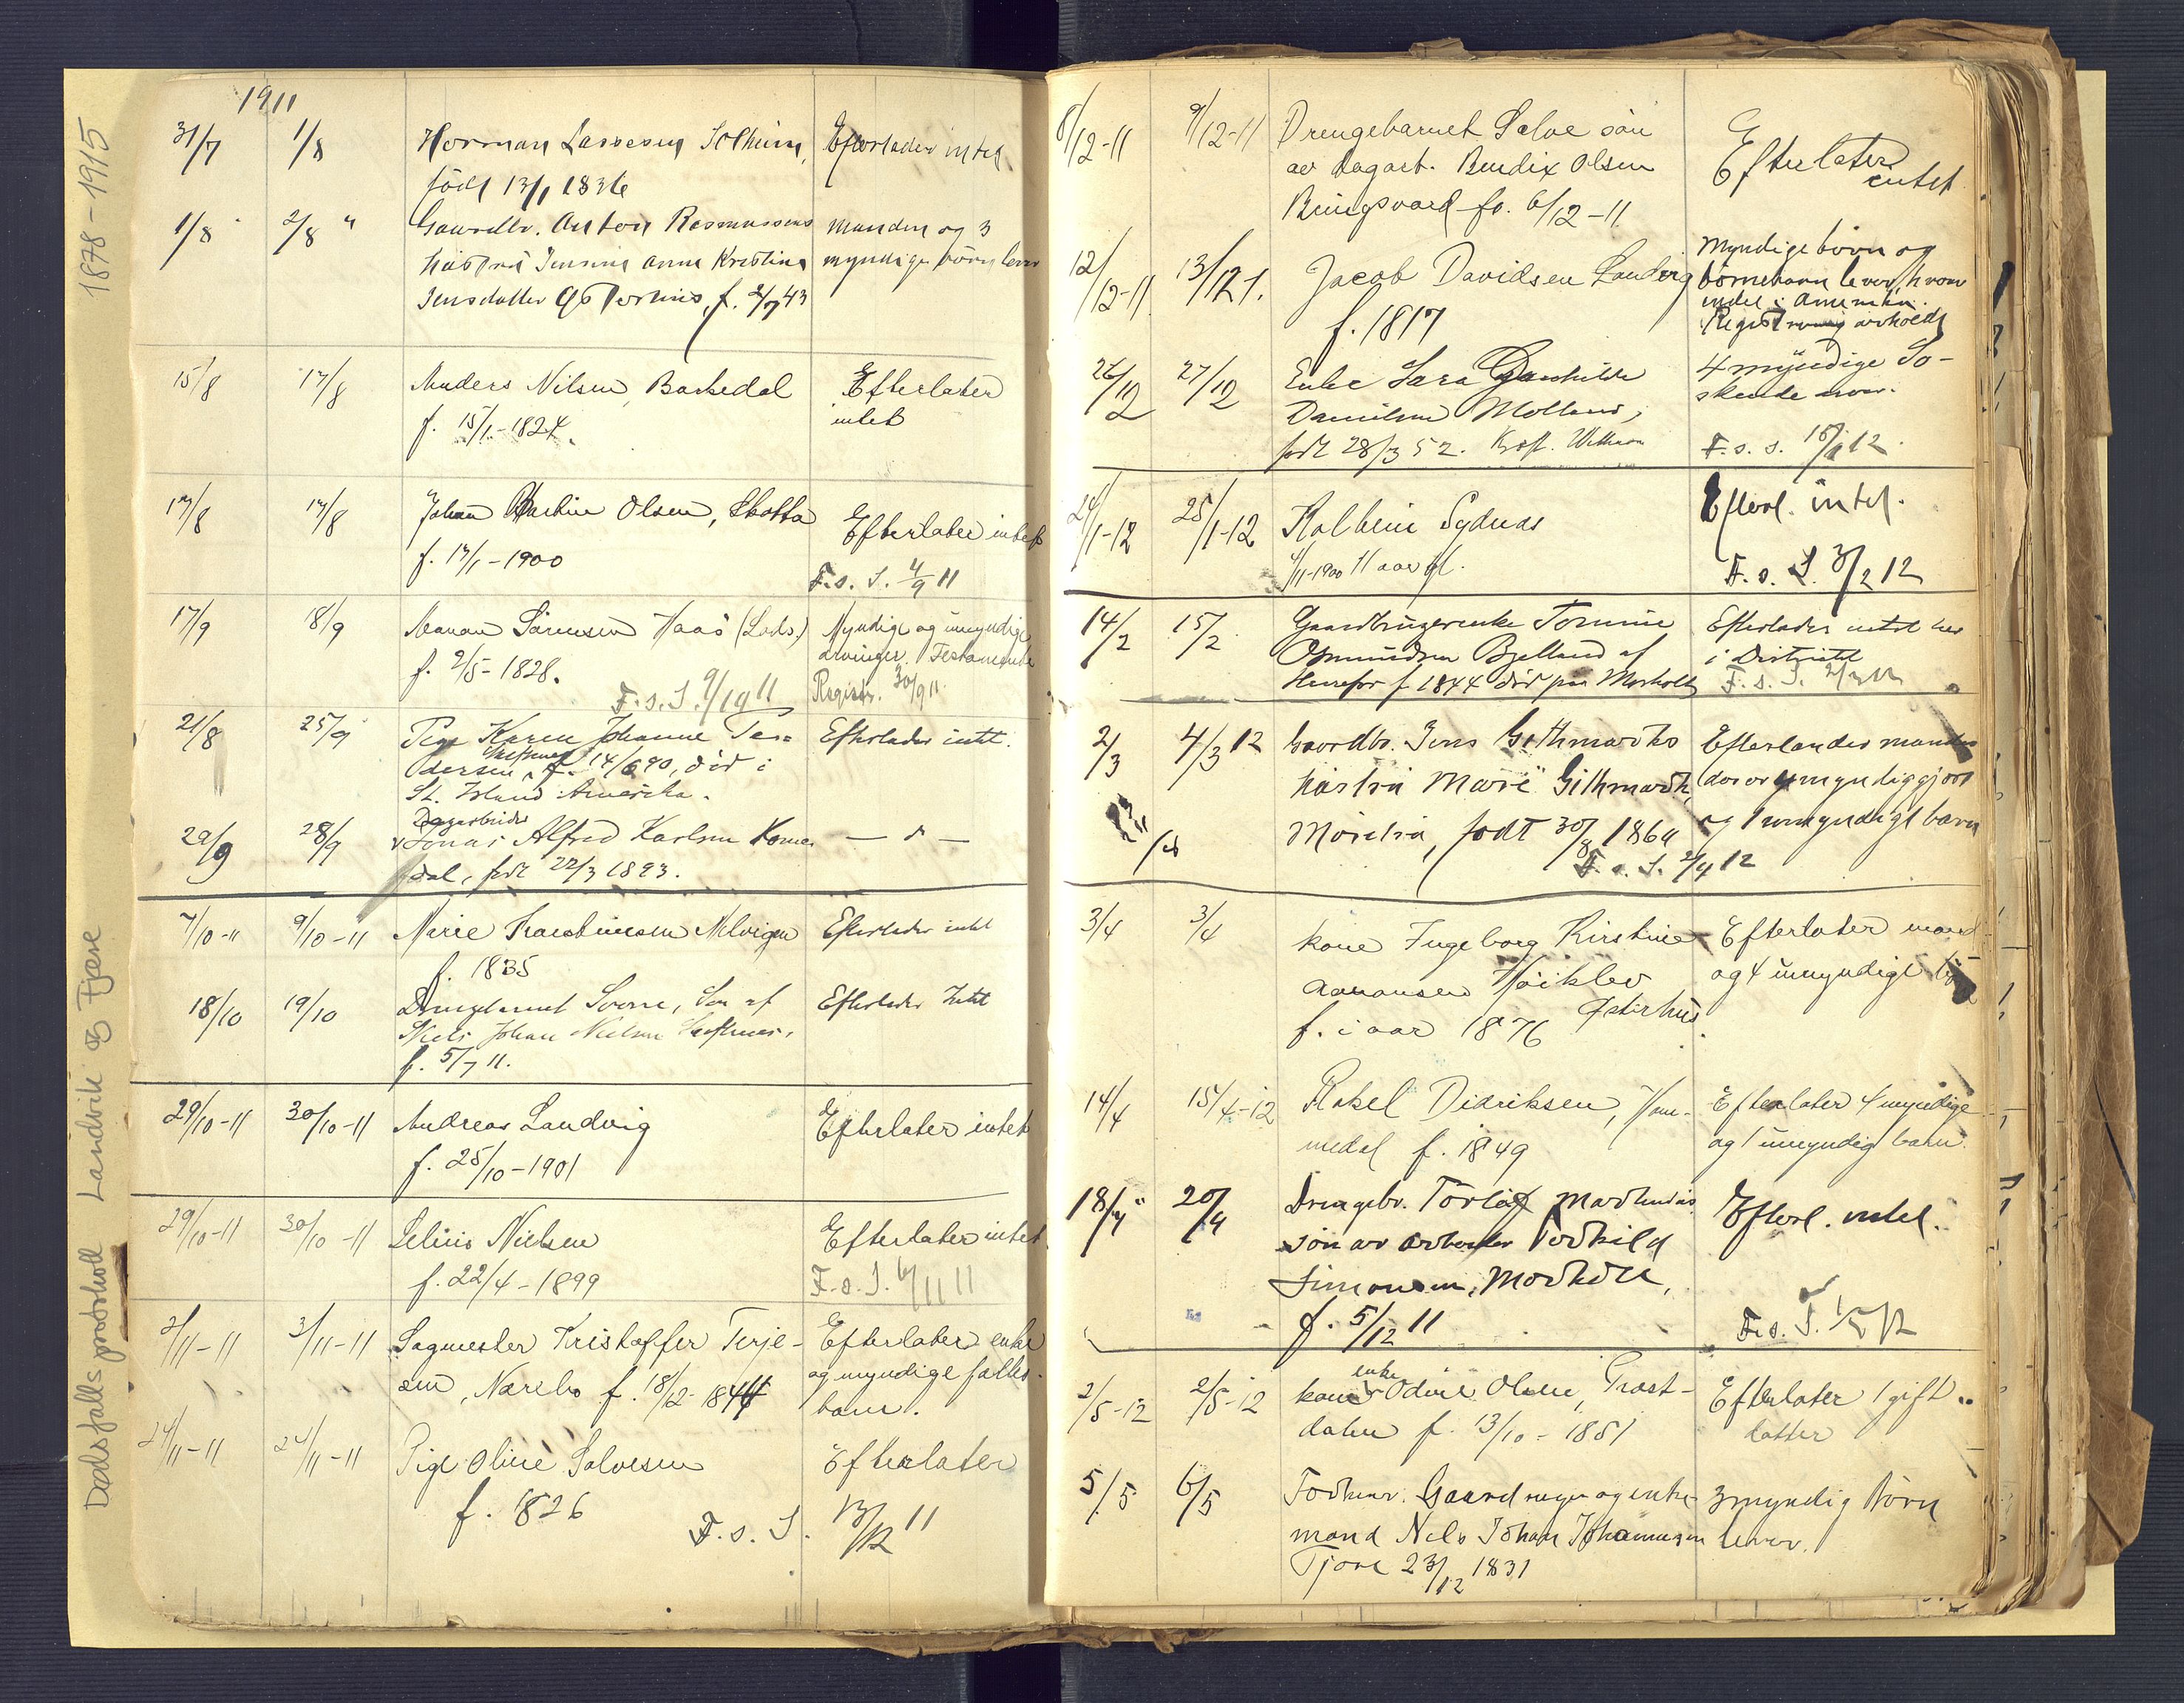 Dødsfallsprotokoll Landvik og Fjære 1878-1915
1911
31/7 1/8 Herman Lassesen Solheim, Efterlader intet
født 13/1 1836
1/8 2/8 " Gaardbr. Anton Rasmussens manden og 3
hustru Jensine Anne Kristine myndige börn lever
Jensdatter Østerhus, f. 2/7 43
15/8 17/8 Anders Nilsen, Barkedal Efterlater
f. 15/1-1824. intet
17/8 17/8 Johan Martin Olsen, Skotta Efterlater intet
f. 17/1-1900 F.s.S. 4/9 11
17/9 18/9 Aanon Sörensen Haaö (Lods.) Myndige og umyndige
f. 2/5-1828. arvinger. Testamente
F.s.S. Registr. 30/9 11.
21/8 25/9 Pige Karen Johanne
Pedersen 14/6 90, död i Efterlader intet.
St. Island Amerika.
28/9 Jonas Alfred Karlsen
dal, född 22/3 1893.
7/10-11 9/10-11 Marie Efterlader intet
f. 1835
18/10 19/10 Drengebarnet Sverre, Søn af Efterlader Intet
Niels Johan Nielsen
f. 5/7 11.
29/10-11 30/10-11 Andreas Landvig Efterlater intet
f. 25/10-1901
29/10-11 30/10-11 Nielsen Efterlater intet.
f. 22/4-1899 F.s.S. 6/11 11
3/11-11 3/11-11 Sagmester Kristoffer Terje- Efterlater enke
sen, f. 18/12-1844 og myndige fælles-
barn.
24/11-11 24/11-11 Pige Oline Salvesen Efterlater
f. 1826
F.s.S. 13/12 11
8/12-11 9/12-11 Drengebarnet Salve sön Efterlater
av dagarb. Bendix Olsen intet
Bringsværd fö. 6/12-11
12/12-11 13/12 1. Jacob Davidsen Landvig Myndige börn og
f. 1817 börnebarn lever, hvorav
endel i Amerika.
Registrering avholdt
26/12 27/12 Enke Sara Gunhilde 4 myndige Sö-
Danielsen Molland, skende
født 28/3 52. F.s.S. 12.
24/1-12 25/1-12 Kolbein Sydnes Efterl. intet.
4/11-1900 11 aar gl.
F.s.S. 3/2 12
14/2 15/2 Gaardbrugerenke Tomine Efterlader intet her
Osmundsen Bjelland af i Distriktet
f 1844 död paa Morholt F.s.S.
2/3 4/3 12 Gaardbr. Jens Githmarks Efterlander manden
hustru Marie Githmark, der er umyndiggjort
født 30/8 1864 og 1 umyndigt barn
F.s.S. 2/4 12
3/4 3/4 Kone Ingeborg Kirstine Efterlater mand
Aanonsen Höiklev og 4 umyndige
f. i aar 1876 Østerhus.
14/4 15/4-12 Rakel Didriksen, Hom- Efterlater 4 myndige
medal f. 1849 og 1 umyndig barn.
18/4 " 20/4 Drengebr. Torlöf Efterl. intet.
sön av arbeider Torkild
Simonsen, Morholt,
f. 5/12 11 F.s.S.
enke
2/5-12 2/5-12 Kone Odine Olsen, Trost- Efterlater 1 gift
dalen f. 13/10-1851 datter
5/5 6/5 Forhenv. Gaardeier og enke- 3 myndig börn
mand Nels Johan Johannesen lever.
Tjore 23/12 1831